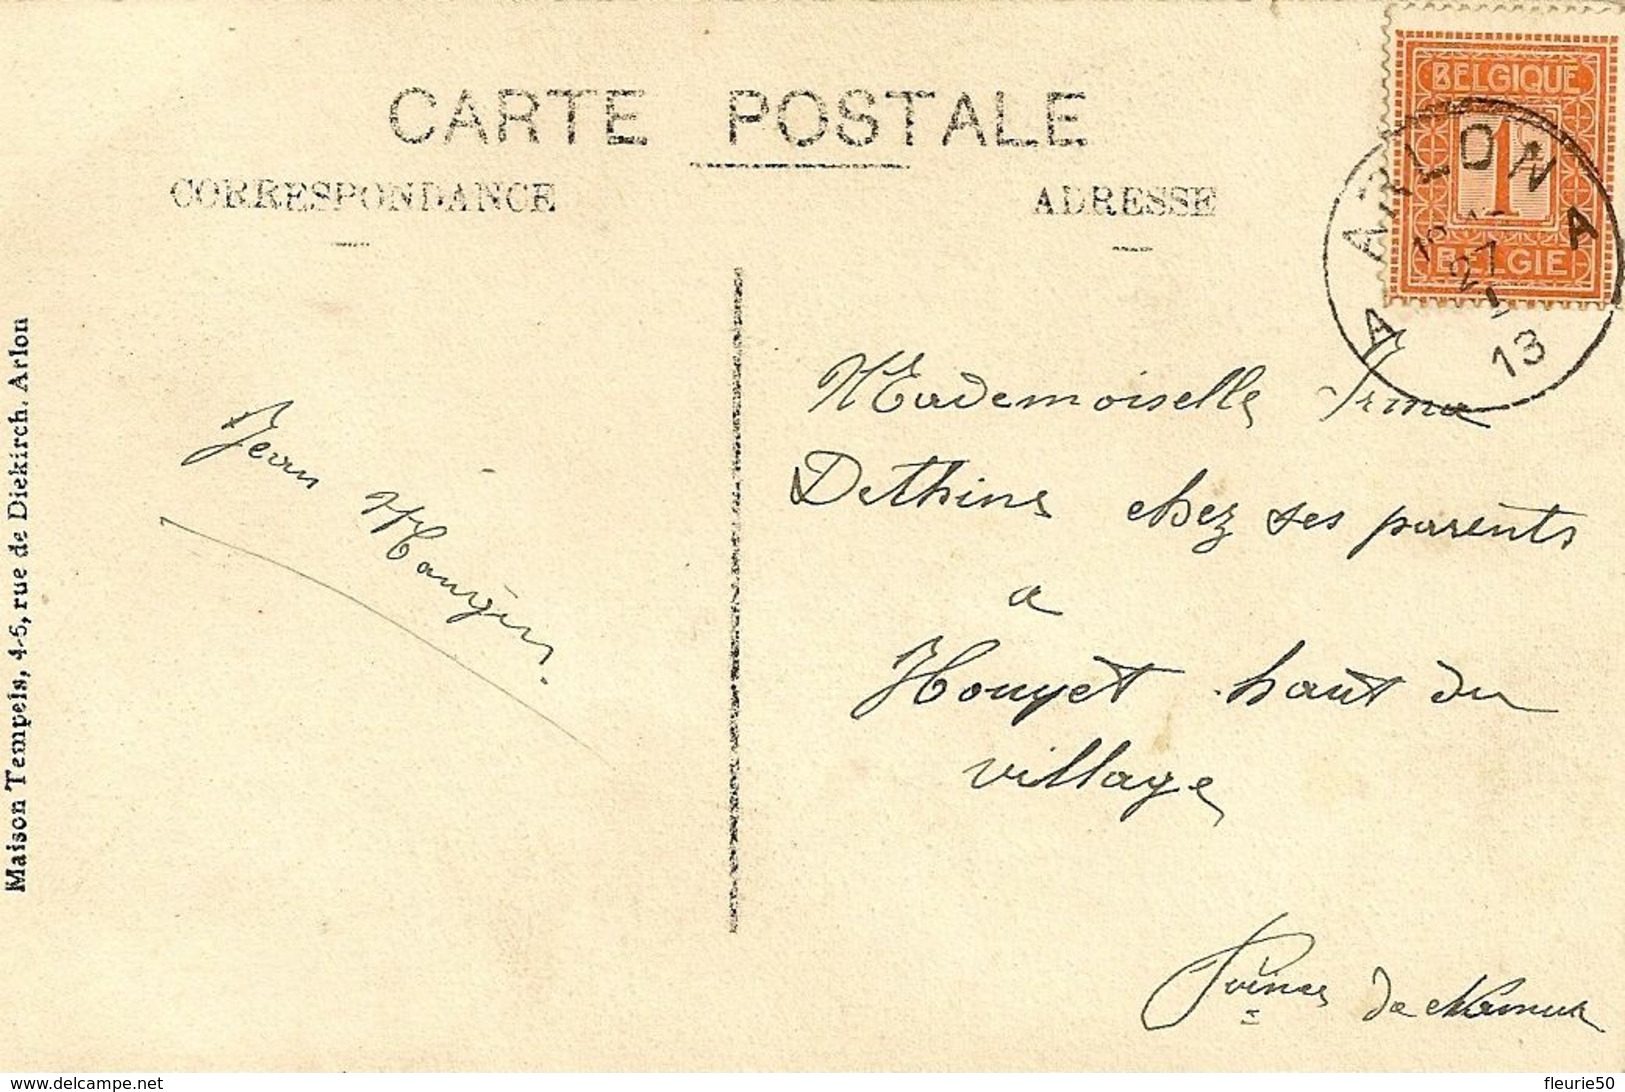 CARTE POSTALE
CORRESPONDANCE
ADRESSE
BELGIQUE
1
BELGIE
ARLON
A A
27
13
Maison Tempels, 4-6, rue de Diekirch, Arlon
Jean
Mademoiselle Irma
Dethine chez ses parents
a
Houyet haut du
village
de Namur
www.delcampe.net
fleurie50